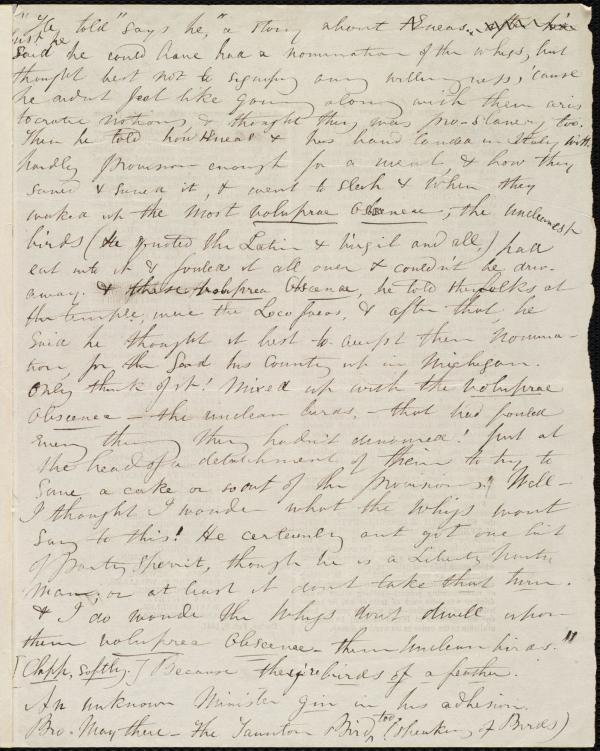 "He told" says he, "a story about AEneas.
Just he said he could have had a nomination of the Whigs, but
thought best not to signify any willingness, 'cause
he didnt feel like going along with them aris
tocratic notions & thought they was pro-slavery too.
Then he told how AEneas & his band landed in Italy with
hardly provision enough for a meal & how they
saved & saved it, & went to sleep & when they
waked up the most voluprae Obscenae, the uncleanest
birds (He quoted the Latin & Virgil and all,) had
eat into it & fouled it all over & couldn't be driv
away. & these voluprea Obscenae, he told the folks at
the temple, were the Loco focos, & after that, he
said he thought it best to accept them nomina-
tion, for the Good his County up in Michigan.
Only think of it! Mixed up with the voluprae
Obscenae – the unclean birds, – that had fouled
every thing they hadn't devoured! Just at
the head of a detachment of them to try to
save a cake or so out of the provisions! Well –
I thought I wonder what the Whigs wont
say to this! He certainly ant got one bit
of party spirit, though he is a Liberty Party
man, or at least it dont take that turn.
& I do wonder the Whigs dont dwell upon
them voluprea Obscenae – them unclean birds."
[Clapp, softly.] Because they're birds of a feather.
An unknown Minister gin in his adhesion.
Bro. May there – the Taunton Bird, too (speaking of Birds)